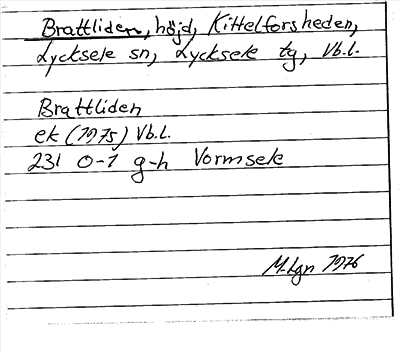 Brattliden, höjd, Kittelforsheden,
Lycksele sn, Lycksele tg, Vb.l.
Brattliden
ek (1975) Vb.l.
231 0-1 g-h Vormsele
M. Lgn 1976